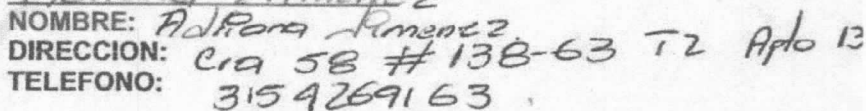 NOMBRE: Adriana Jimenez
DIRECCION: Cra 58 # 138-63 T2 Apto 13
TELEFONO: 3154269163